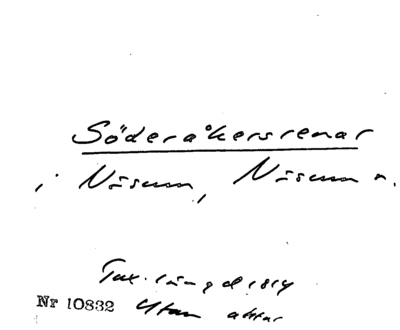 Söderåkersrenar
i Näsum, Näsum n.
Tax. längd 1814
Nr 10832 Utan aktnr